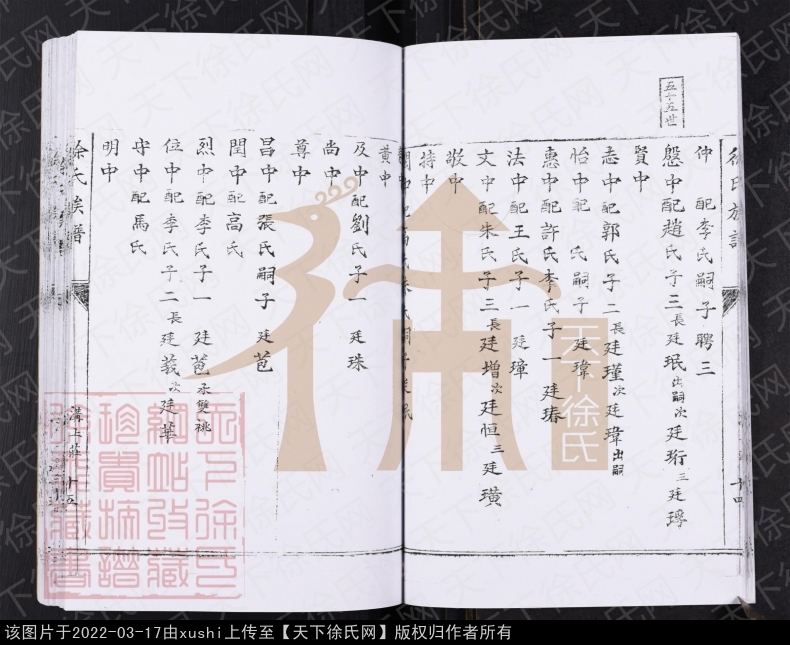 五十五世
徐氏族譜
仲 配李氏嗣子聘三
盤中配趙氏子三長廷珉出嗣次廷珩三廷琈
賢中
志中配郭氏子二長廷瑾次廷瑋出嗣
怡中配 氏嗣子廷瑋
惠中配許氏李氏子一廷瑃
法中配王氏子一廷璋
文中配朱氏子三長廷增次廷恒三廷璜
敬中
持中
十四
黄中
及中配劉氏子一廷珠
尚中
尊中
昌中配張氏嗣子廷苞
閏中配高氏
烈中配李氏子一廷苞承雙祧
位中配李氏子二長廷莪次廷華
守中配馬氏
明中
徐氏族譜
溝上莊
十五
徐
天下徐氏
天下徐氏網
该图片于2022-03-17由xushi上传至【天下徐氏网】版权归作者所有